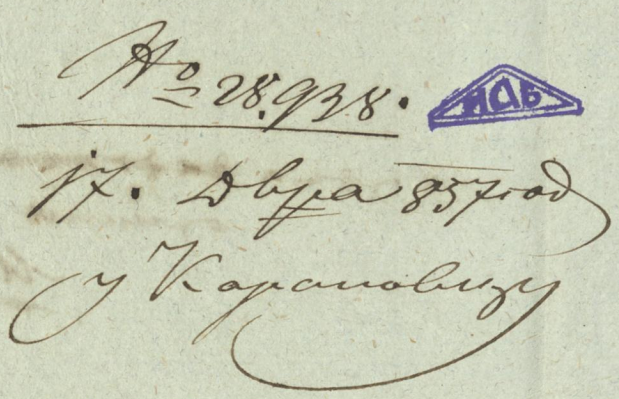 No 28.938.
НДБ
17. Двра 857 год
у Карановцу